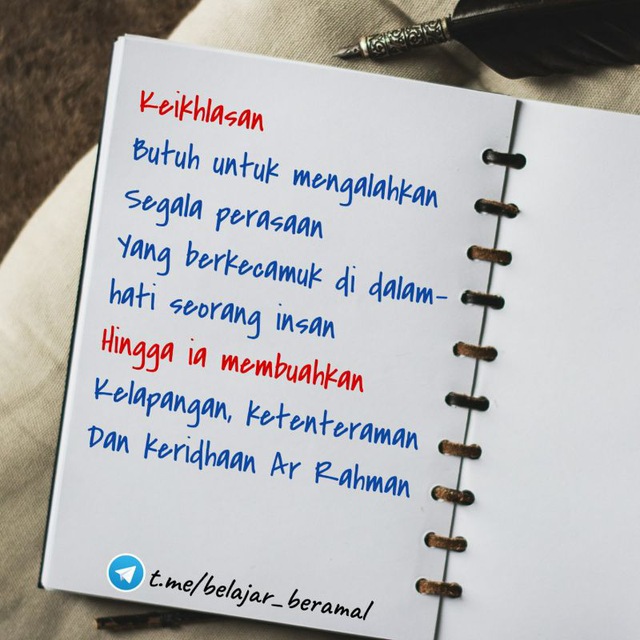 Keikhlasan
Butuh untuk mengalahkan
Segala perasaan
Yang berkecamuk di dalam-
hati seorang insan
Hingga ia membuahkan
Kelapangan, ketenteraman
Dan keridhaan Ar Rahman
t.me/belajar_beramal